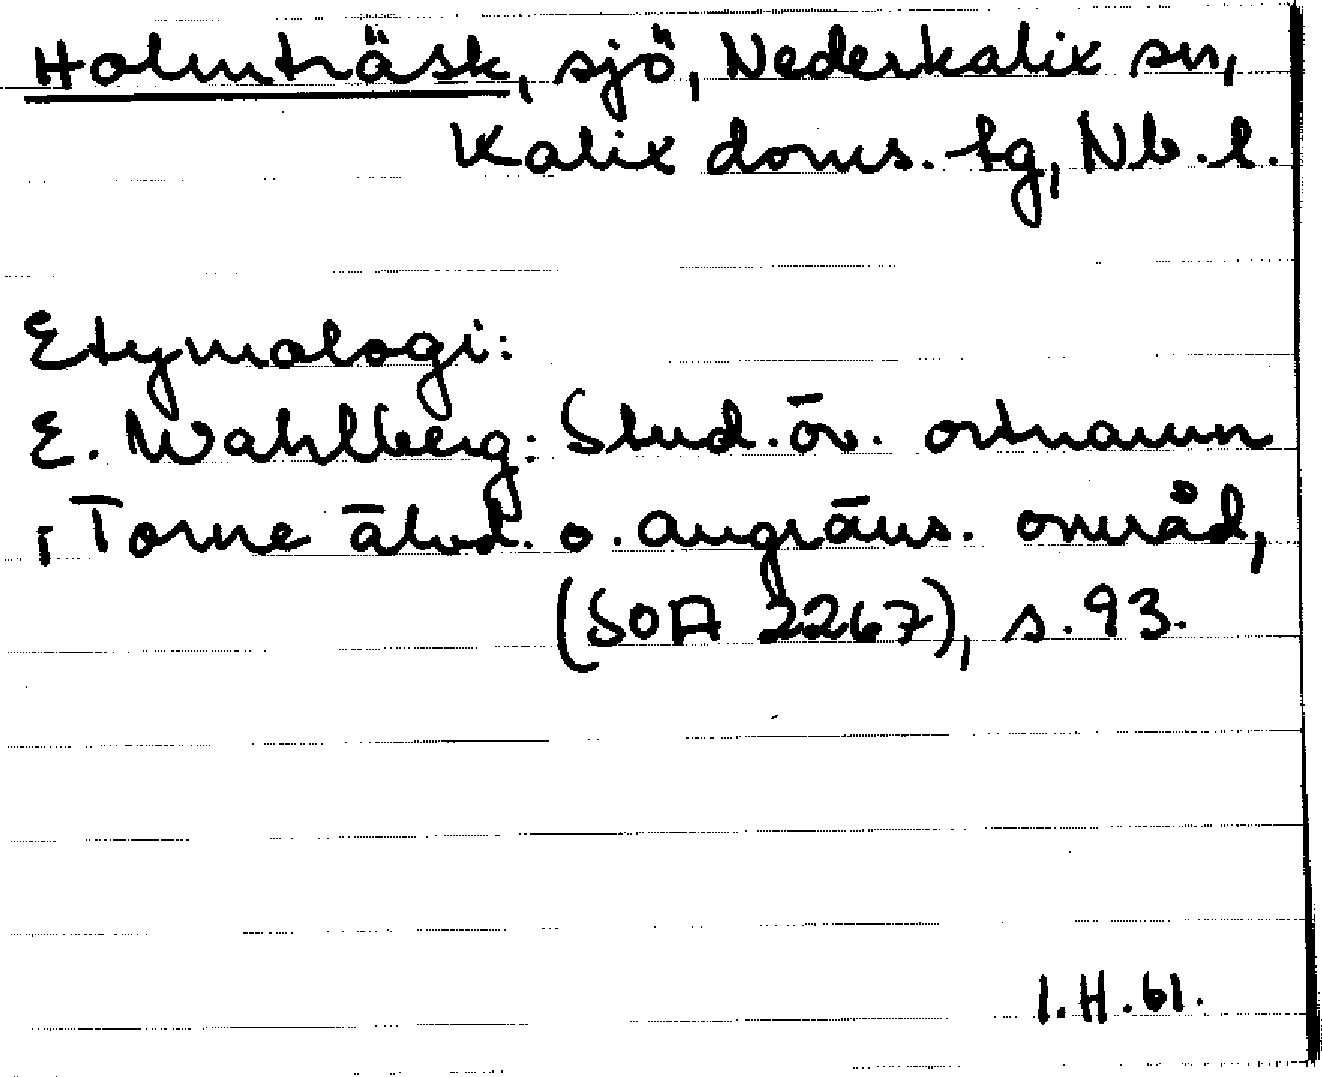 Holmträsk, sjö, Nederkalix sn,
Kalix doms. tg, Nb. l.
Etymologi:
E. Wahlberg: Stud. öv. ortnamn
i Torne älvd. o. angräns. områd,
(SOA 2267), s. 93.
I. H. 61.